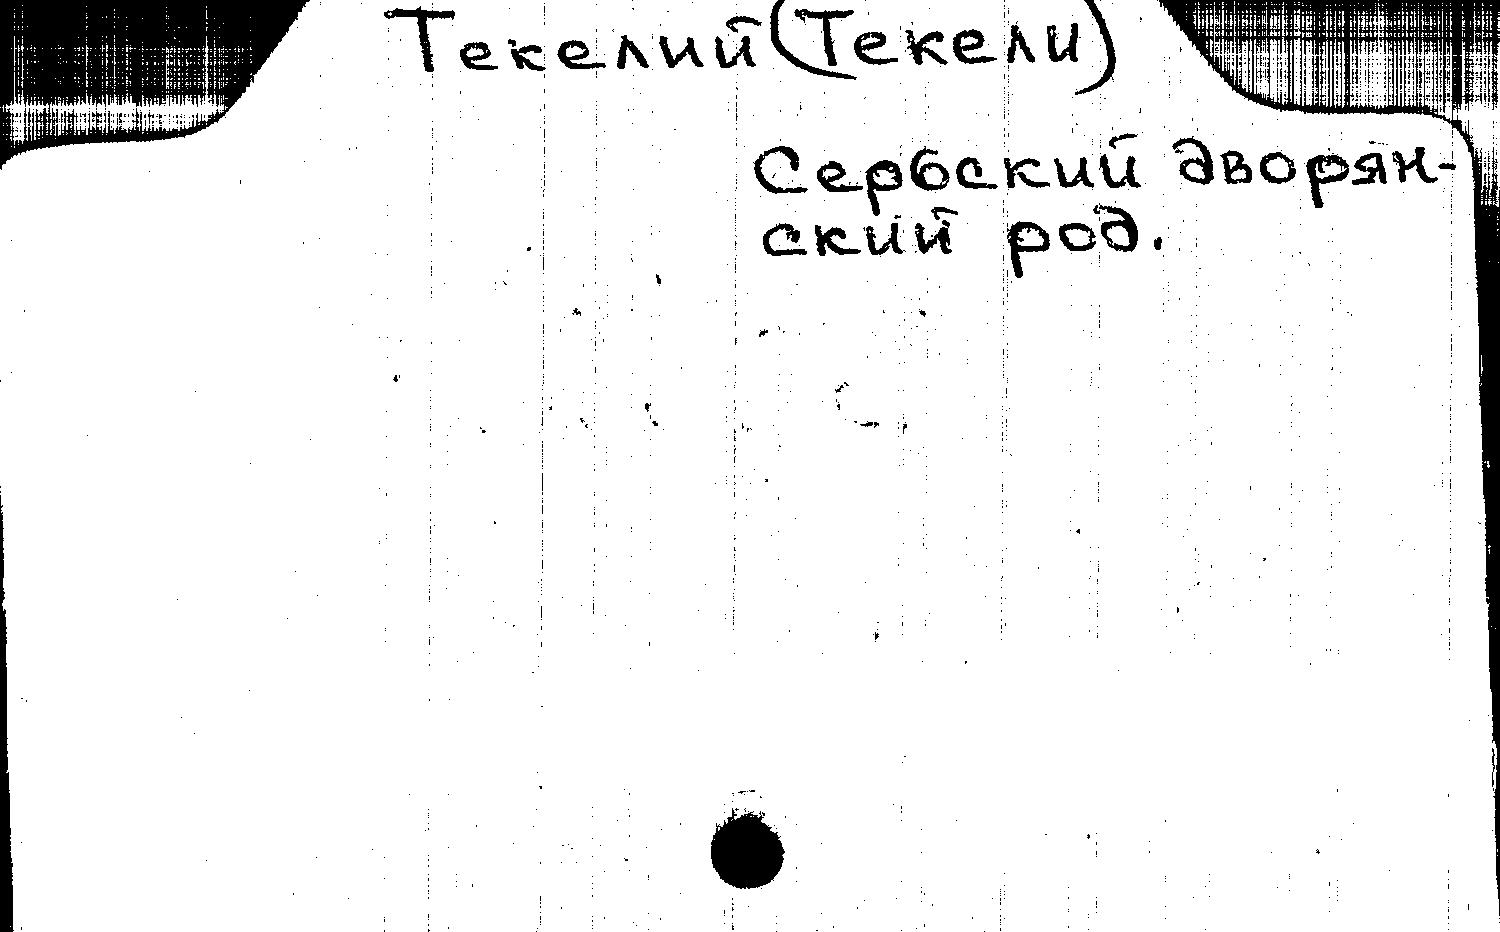 Текелий (Текели)
Сербский дворян-
ский род.